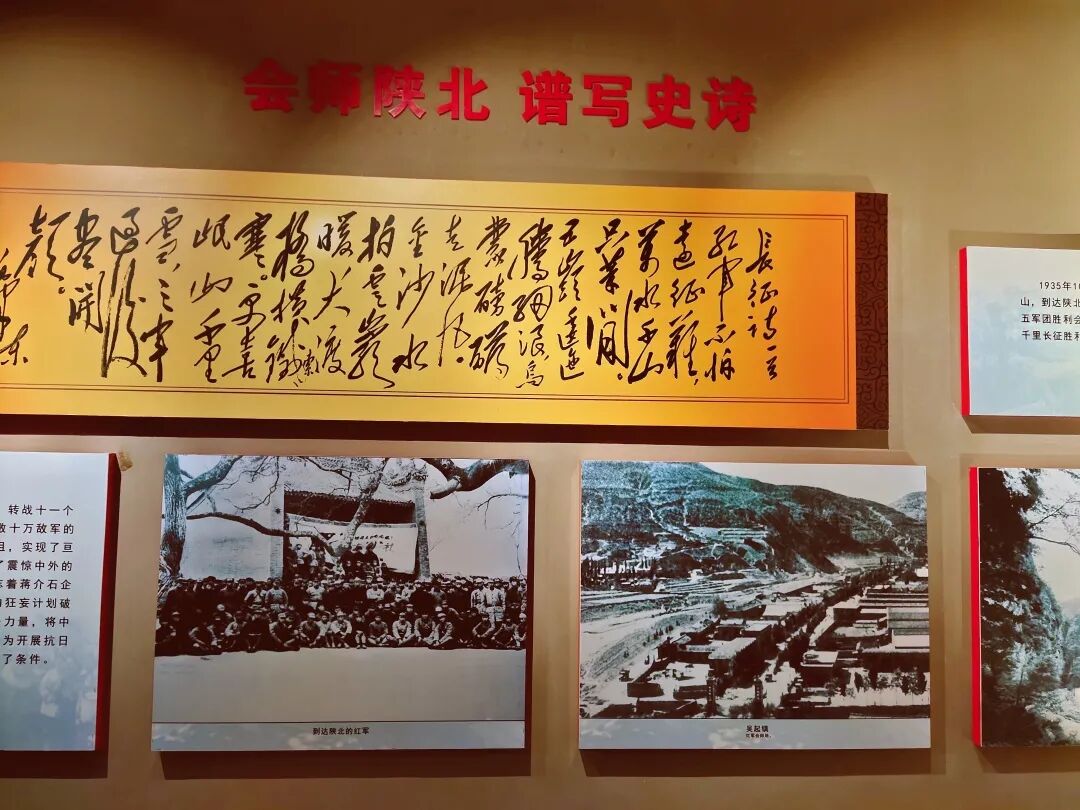 会师陕北 谱写史诗
長征詩一首
红軍不怕
遠征難，
萬水千山
只等闲。
五嶺逶迤
騰細浪，烏
蒙磅礴
走泥丸。
金沙水
拍雲巖
暖大渡
橋橫鐵索
寒。更喜
岷山千里
雪，三軍
過後
盡開
顏。
1935年10
山，到达陕北
五军团胜利会
千里长征胜利
转战十一个
十万敌军的
，实现了亘
了震惊中外的
志着蒋介石企
狂妄计划破
力量，将中
为开展抗日
了条件。
到达陕北的红军
吴起镇